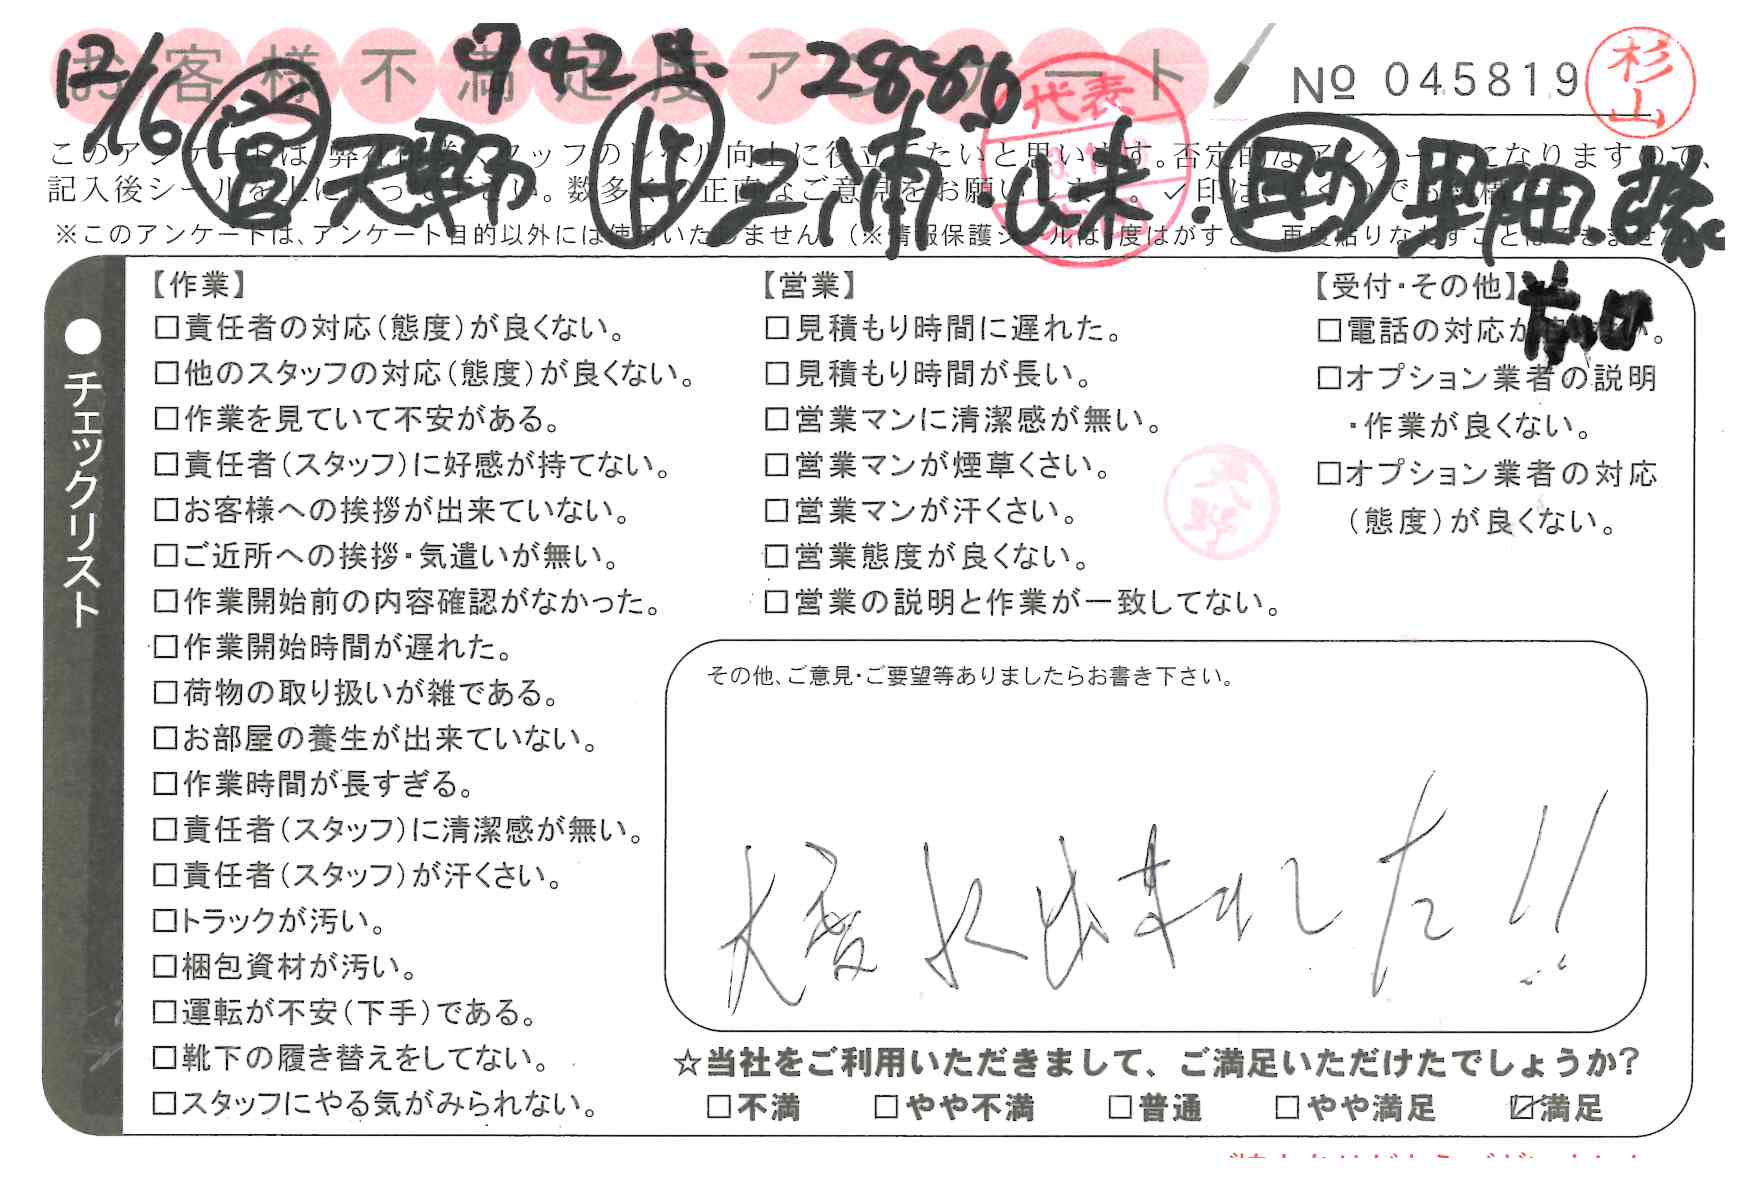 お客様不満足度アンケート
12/16 942 2886
No 045819
杉山
営 天野 作 三浦 助 野田
代表
このアンケートは、弊社作業スタッフのレベル向上に役立てたいと思います。否定的なアンケートになりますので、
記入後シールを上に貼って下さい。数多くの正直なご意見をお願いします。✓印は
※このアンケートは、アンケート目的以外には使用いたしません。(※情報保護シールは1度はがすと、再度貼りなおすことはできません
●チェックリスト
【作業】
□責任者の対応(態度)が良くない。
□他のスタッフの対応(態度)が良くない。
□作業を見ていて不安がある。
□責任者(スタッフ)に好感が持てない。
□お客様への挨拶が出来ていない。
□ご近所への挨拶・気遣いが無い。
□作業開始前の内容確認がなかった。
□作業開始時間が遅れた。
□荷物の取り扱いが雑である。
□お部屋の養生が出来ていない。
□作業時間が長すぎる。
□責任者(スタッフ)に清潔感が無い。
□責任者(スタッフ)が汗くさい。
□トラックが汚い。
□梱包資材が汚い。
□運転が不安(下手)である。
□靴下の履き替えをしてない。
□スタッフにやる気がみられない。
【営業】
□見積もり時間に遅れた。
□見積もり時間が長い。
□営業マンに清潔感が無い。
□営業マンが煙草くさい。
□営業マンが汗くさい。
□営業態度が良くない。
□営業の説明と作業が一致してない。
天野
【受付・その他】
□電話の対応が
□オプション業者の説明
・作業が良くない。
□オプション業者の対応
(態度)が良くない。
その他、ご意見・ご要望等ありましたらお書き下さい。
大変よく出来ました!!
☆当社をご利用いただきまして、ご満足いただけたでしょうか?
□不満 □やや不満 □普通 □やや満足 ☑満足